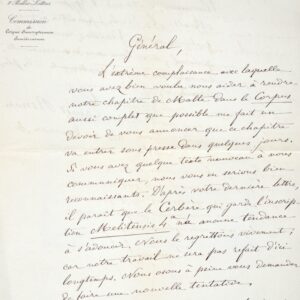 & Belles-Lettres
Commission
du
Corpus Inscriptionum
Semiticarum
Général,
L'extrême complaisance avec laquelle
vous avez bien voulu nous aider à rendre
notre chapitre de Malte dans le Corpus
aussi complet que possible me fait un
devoir de vous annoncer que ce chapitre
va entrer sous presse dans quelques jours.
Si vous avez quelque texte nouveau à nous
communiquer, nous vous en serions bien
reconnaissants. D'après votre dernière lettre,
il paraît que le Cerbère qui garde l'inscrip-
tion Melitensis 4a n'a aucune tendance
à s'adoucir. Nous le regrettons vivement;
car notre travail ne sera pas refait d'ici
longtemps. Nous osons à peine vous demander
de faire une nouvelle tentative.